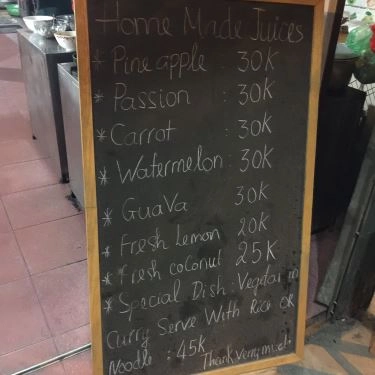 Home Made Juices
* Pineapple : 30K
* Passion : 30K
* Carrot : 30K
* Watermelon : 30K
* Guava 30K
* Fresh Lemon 20K
* Fresh coconut 25K
* Special Dish : Vegetarian
Curry Serve With Rice OR
Noodle : 45K Thank very much